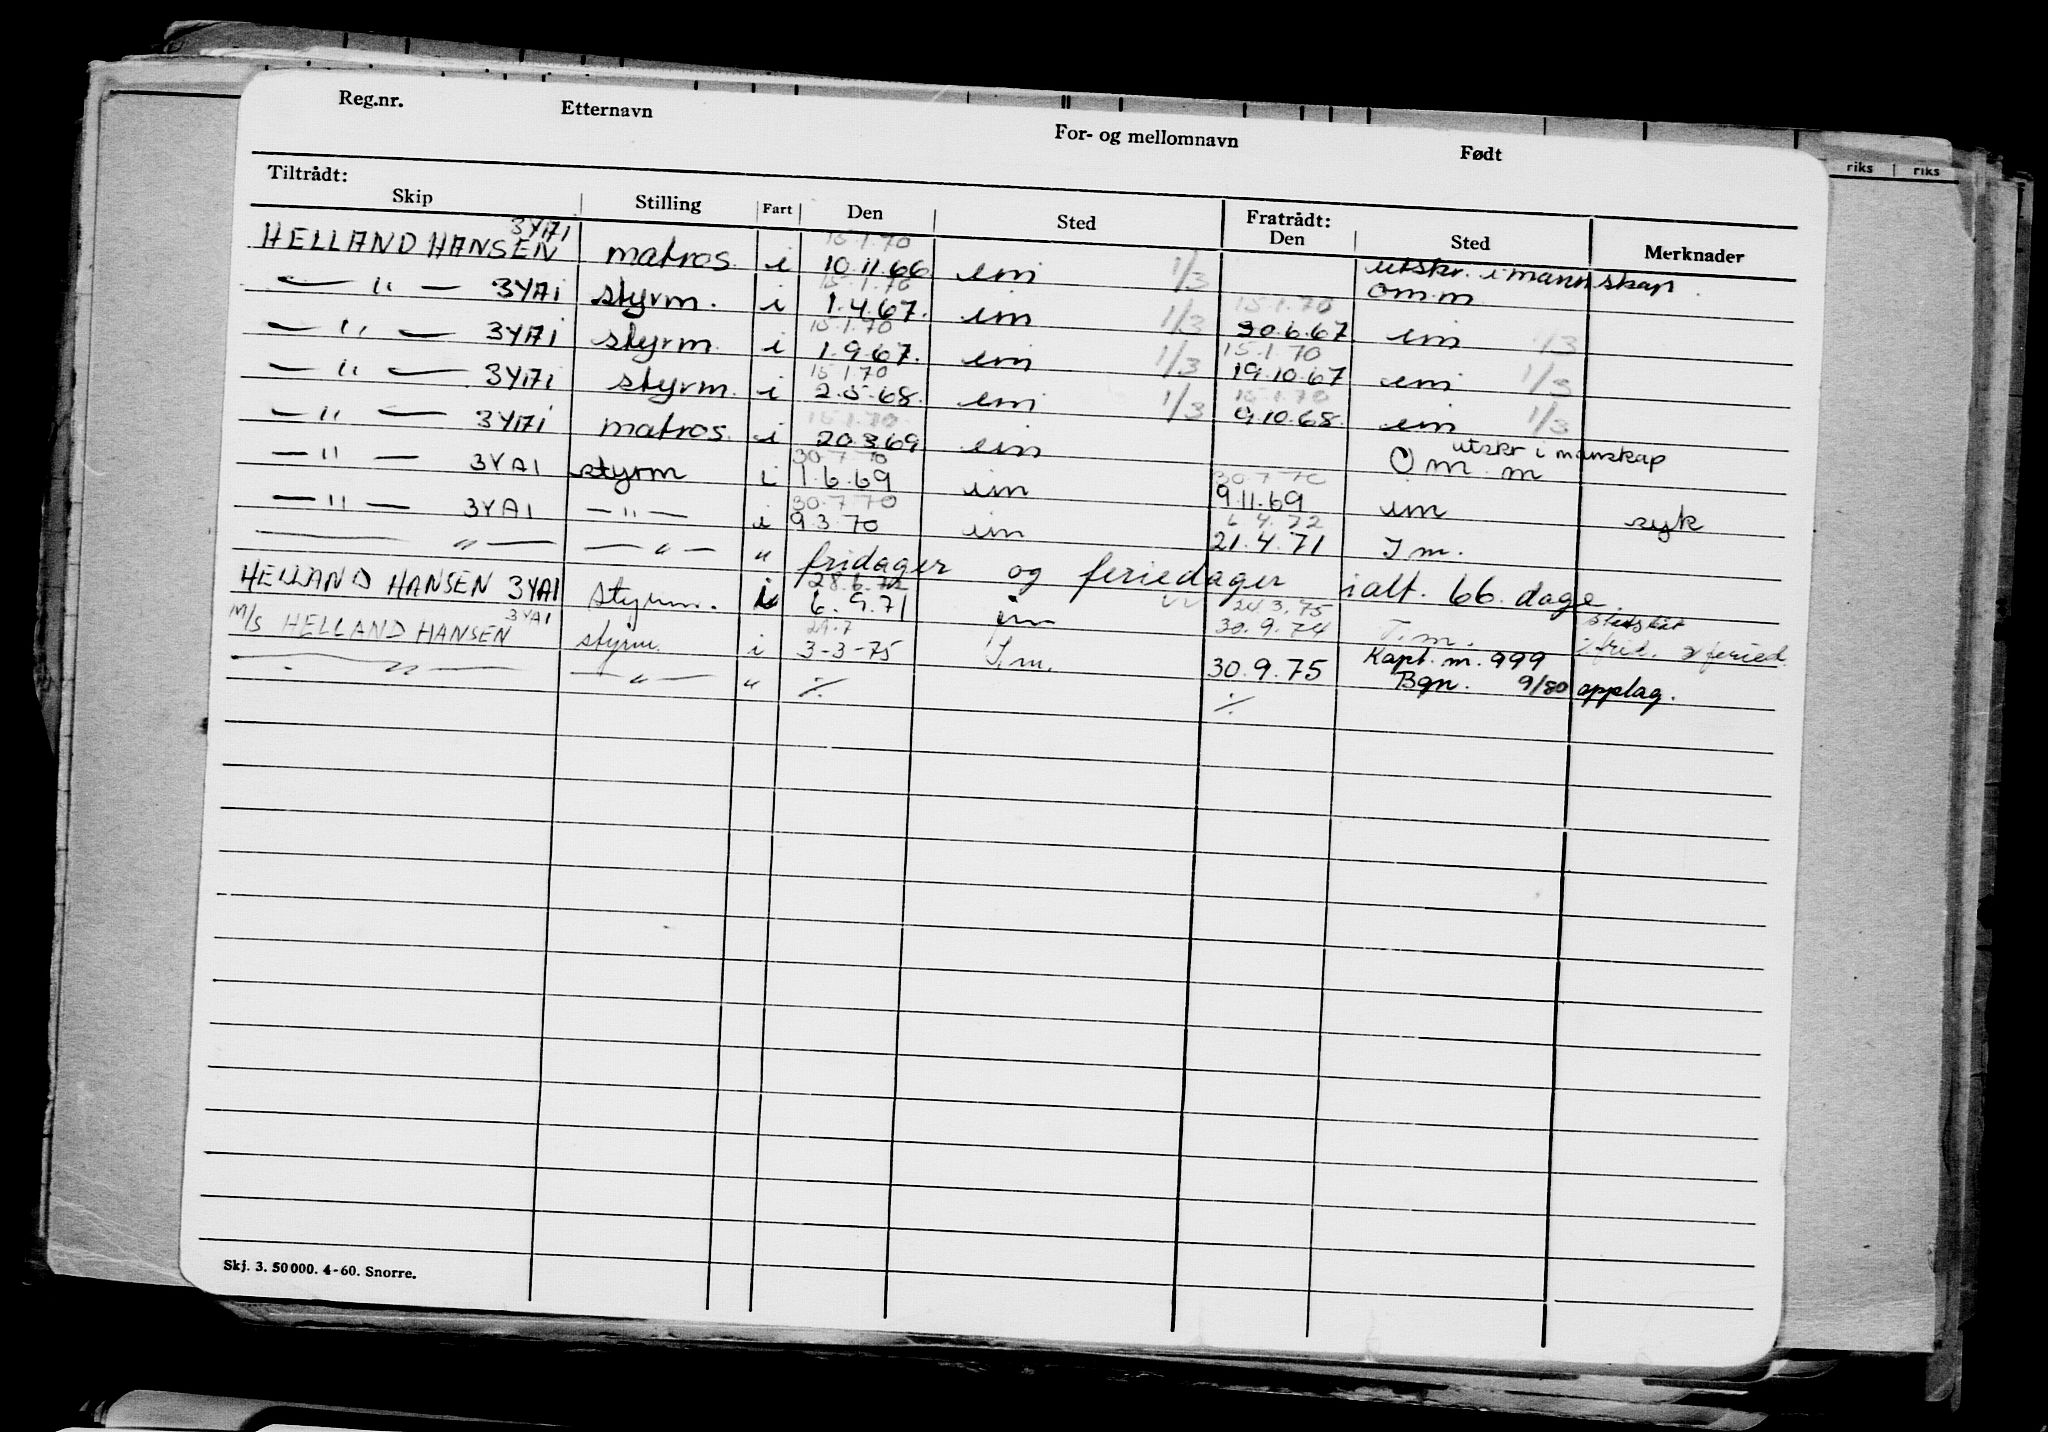 Reg.nr. Etternavn For- og mellomnavn Født
Tiltrådt: Fratrådt:
Skip Stilling Fart Den Sted Den Sted Merknader
riks riks
3YAI 15.1.70
HELLAND HANSEN matros i 10.11.66 1/3 utskr. i mannskap
15.1.70 om.m
— " — 3YAI styrm. i 1.4.67. 1/3 15.1.70 30.6.67 1/3
15.1.70
— " — 3YAI styrm. i 1.9.67. 1/3 15.1.70 19.10.67 1/3
15.1.70
— " — 3YAI styrm. i 2.5.68. 1/3 15.1.70 9.10.68. 1/3
15.1.70 utskr i manskap
— " — 3YAI matros. i 20.3.69 Om.m
30.7.70 30.7.70
— " — 3YAI styrm i 1.6.69 9.11.69 syk
30.7.70 6.4.72
— " — 3YAI — " — i 9.3.70 21.4.71 I m.
— " — — " — " fridager og feriedager ialt. 66. dage.
28.6.72 24.3.75
HELLAND HANSEN 3YAI styrm. i 6.9.71 30.9.74 I.m. i frid. & feried.
3YAI 29.7
M/S HELLAND HANSEN styrm. i 3-3-75 I.m. 30.9.75 Kapt. m. 999
— " — — " — " ./. ./. Bgn. 9/80 opplag.
Skj. 3. 50 000. 4-60. Snorre.